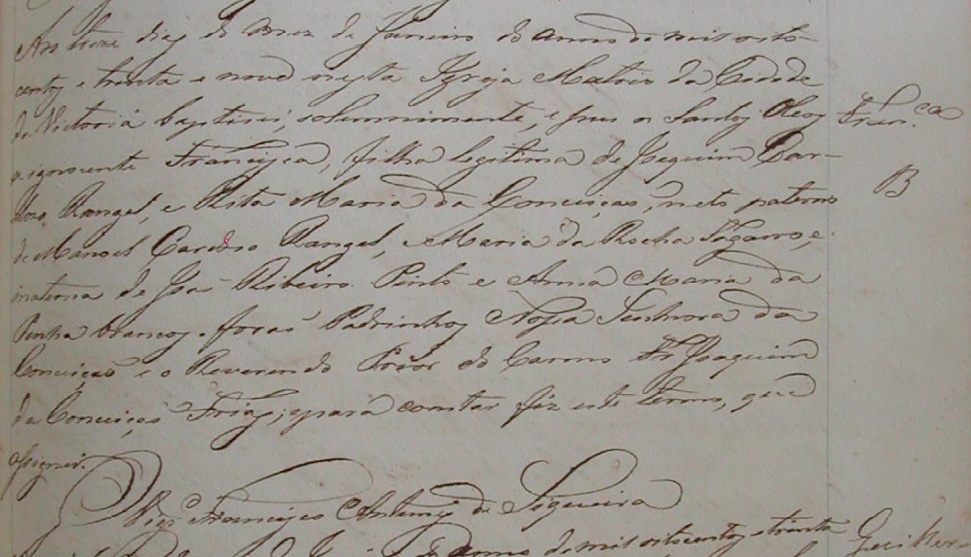 Aos treze dias do mez de Janeiro do anno de mil oito
centos e trinta e nove nesta Igreja Matriz da Cidade
da Victoria baptisei, solemnimente, e pus os Santos Oleos
a ignocente Francisca, filha legitima de Joaquim Car-
dozo Rangel, e Rita Maria da Conceiçaõ, neto paterno
de Manoel Cardozo Rangel, e Maria da Rocha e
materna de Joaõ Ribeiro Pinto e Anna Maria da
Penha brancos. foraõ Padrinhos Nossa Senhora da
Conceiçaõ e o Reverendo Prior do Carmo Fr. Joaquim
da Conceiçaõ Frias; e para constar fiz este termo, que
assignei.
Vigr.º Francisco Antunes de Siqueira
do anno de mil oitocentos e trinta
Fran.ca
B
Guilher-